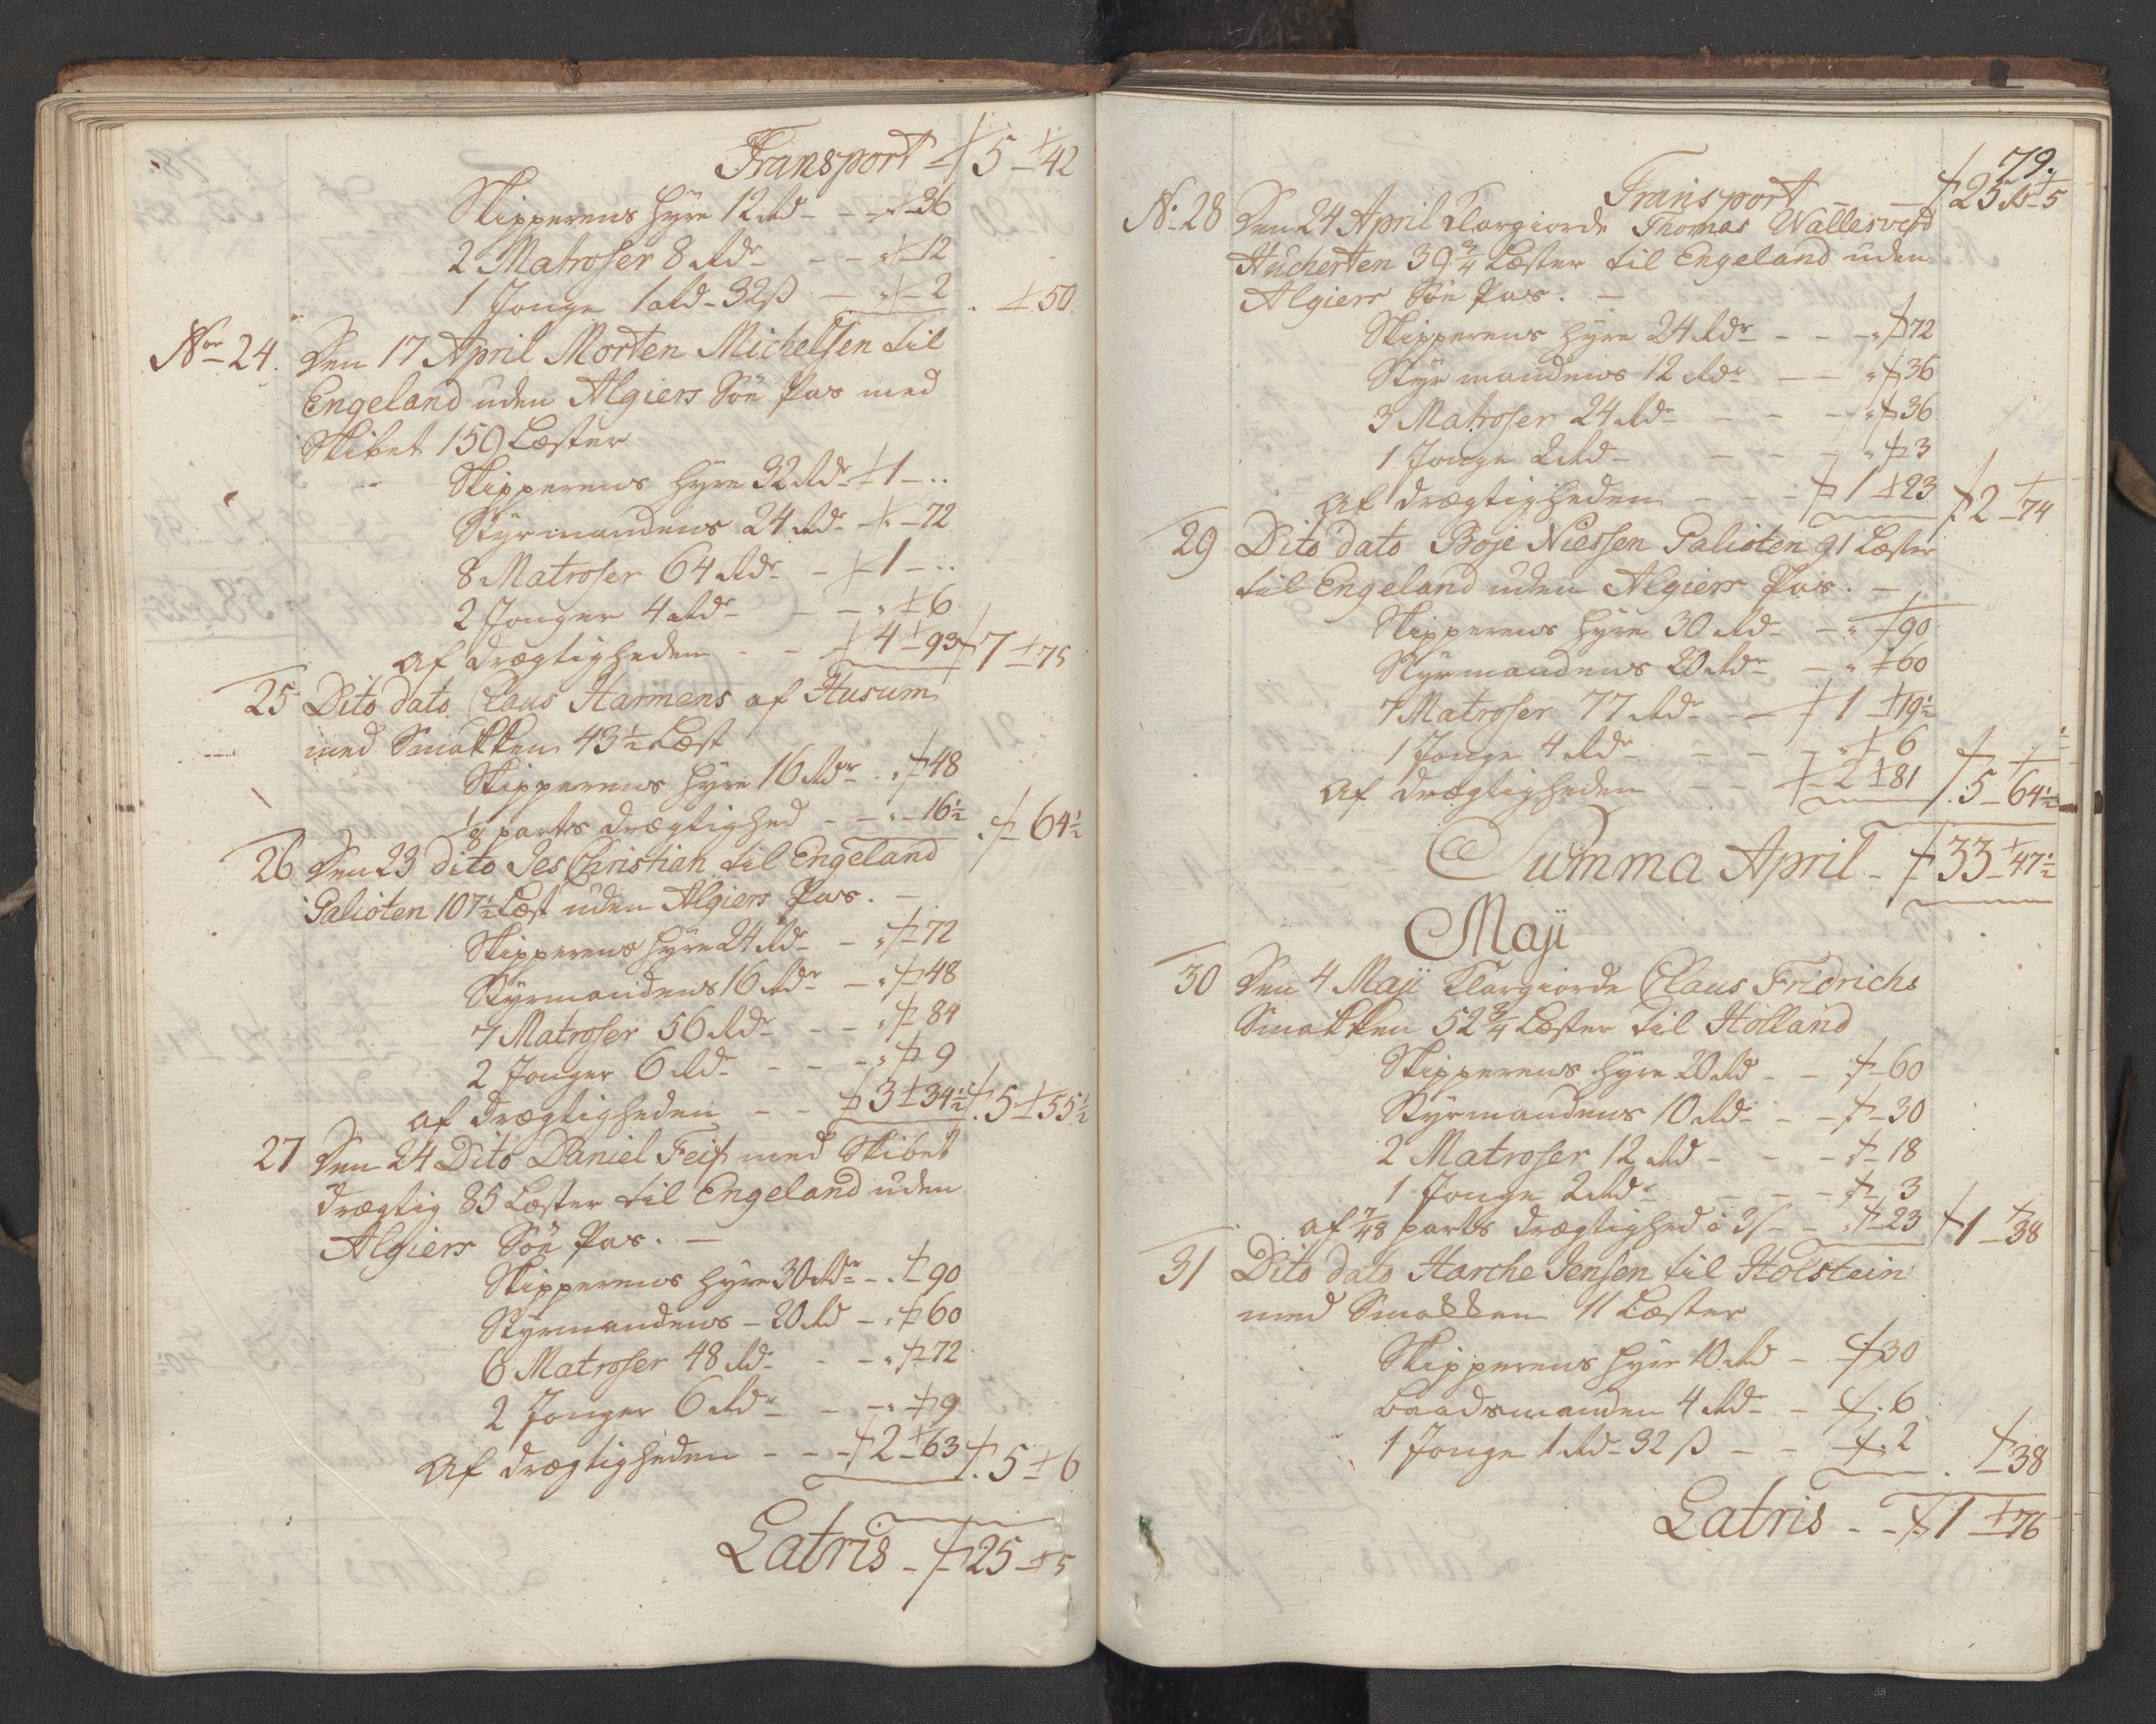 Transport - 5 - 42
Skipperens Hyre 12 Rd - - „ - 36
2 Matroser 8 Rdr - - „ - 12
1 Jonge 1 Rd - 32 ß - „ - 2 . - 50
Nor 24. Den 17 April Morten Michelsen til
Engeland uden Algiers Söe Pas med
Skibet 150 Læster
Skipperens Hyre 32 Rdr - 1 - ..
Styrmandens 24 Rdr - „ - 72
8 Matroser 64 Rdr - 1 - ..
2 Jonger 4 Rdr - - „ - 6
af Drægtigheden - - 4 - 93 7 - 75
25 Dito dato Claus Harmens af Husum
med Smakken 43 1/2 Læst
Skipperens Hyre 16 Rdr . „ 48
1/8 parts Drægtighed - - „ - 16 1/2 . - 64 1/2
26 Den 23 dito Jes Christian til Engeland
Galioten 107 1/2 Læst uden Algiers Pas. -
Skipperens Hyre 24 Rdr - „ - 72
Styrmandens 16 Rdr - „ - 48
7 Matroser 56 Rdr - - „ - 84
2 Jonger 6 Rdr - - - „ - 9
af Drægtigheden - - 3 - 34 1/2 5 - 55 1/2
27 Den 24 Dito Daniel Feif med Skibet
drægtig 85 Læster til Engeland uden
Algiers Söe Pas. -
Skipperens Hyre 30 Rdr - „ - 90
Styrmandens - 20 Rd - „ - 60
6 Matroser 48 Rdr - - „ - 72
2 Jonger 6 Rdr - - „ - 9
af Drægtigheden - - 2 - 63 . 5 - 6
Latris - 25 - 5
79.
Transport - - 25 Rd - 5
No 28 Den 24 April Klargiorde Thomas
Huckerten 39 3/4 Læster til Engeland uden
Algiers Söe Pas. -
Skipperens Hyre 24 Rdr - - - „ 72
Styrmandens 12 Rdr - - „ 36
3 Matroser 24 Rdr - - - „ 36
1 Jonge 2 Rd - - - - „ 3
af Drægtigheden - - - 1 - 23 2 - 74
29 Dito dato Boje Niessen Galioten 91 Læster
til Engeland uden Algiers Pas. -
Skipperens Hyre 30 Rd - - „ - 90
Styrmandens 20 Rdr - „ - 60
7 Matroser 77 Rdr - - 1 - 19 1/2
1 Jonge 4 Rdr - - - „ - 6
af Drægtigheden - - 2 - 81 . 5 - 64 1/2
Summa April - 33 - 47 1/2
Maji
30 Den 4 Maji Klargiorde Claus Fridrichs
Smakken 52 3/4 Læster til Holland
Skipperens Hyre 20 Rd - - - 60
Styrmandens 10 Rdr - - - 30
2 Matroser 12 Rd - - - - 18
1 Jonge 2 Rdr - - - - 3
af 7/48 parts Drægtighed á 3 ß - - „ - 23 1 - 38
31 Dito dato Harche Jensen til Holstein
med Smakken 11 Læster
Skipperens Hyre 10 Rd - - 30
Baadsmanden 4 Rdr - - . 6
1 Jonge 1 Rd - 32 ß - - . 2 . - 38
Latris - - 1 - 76